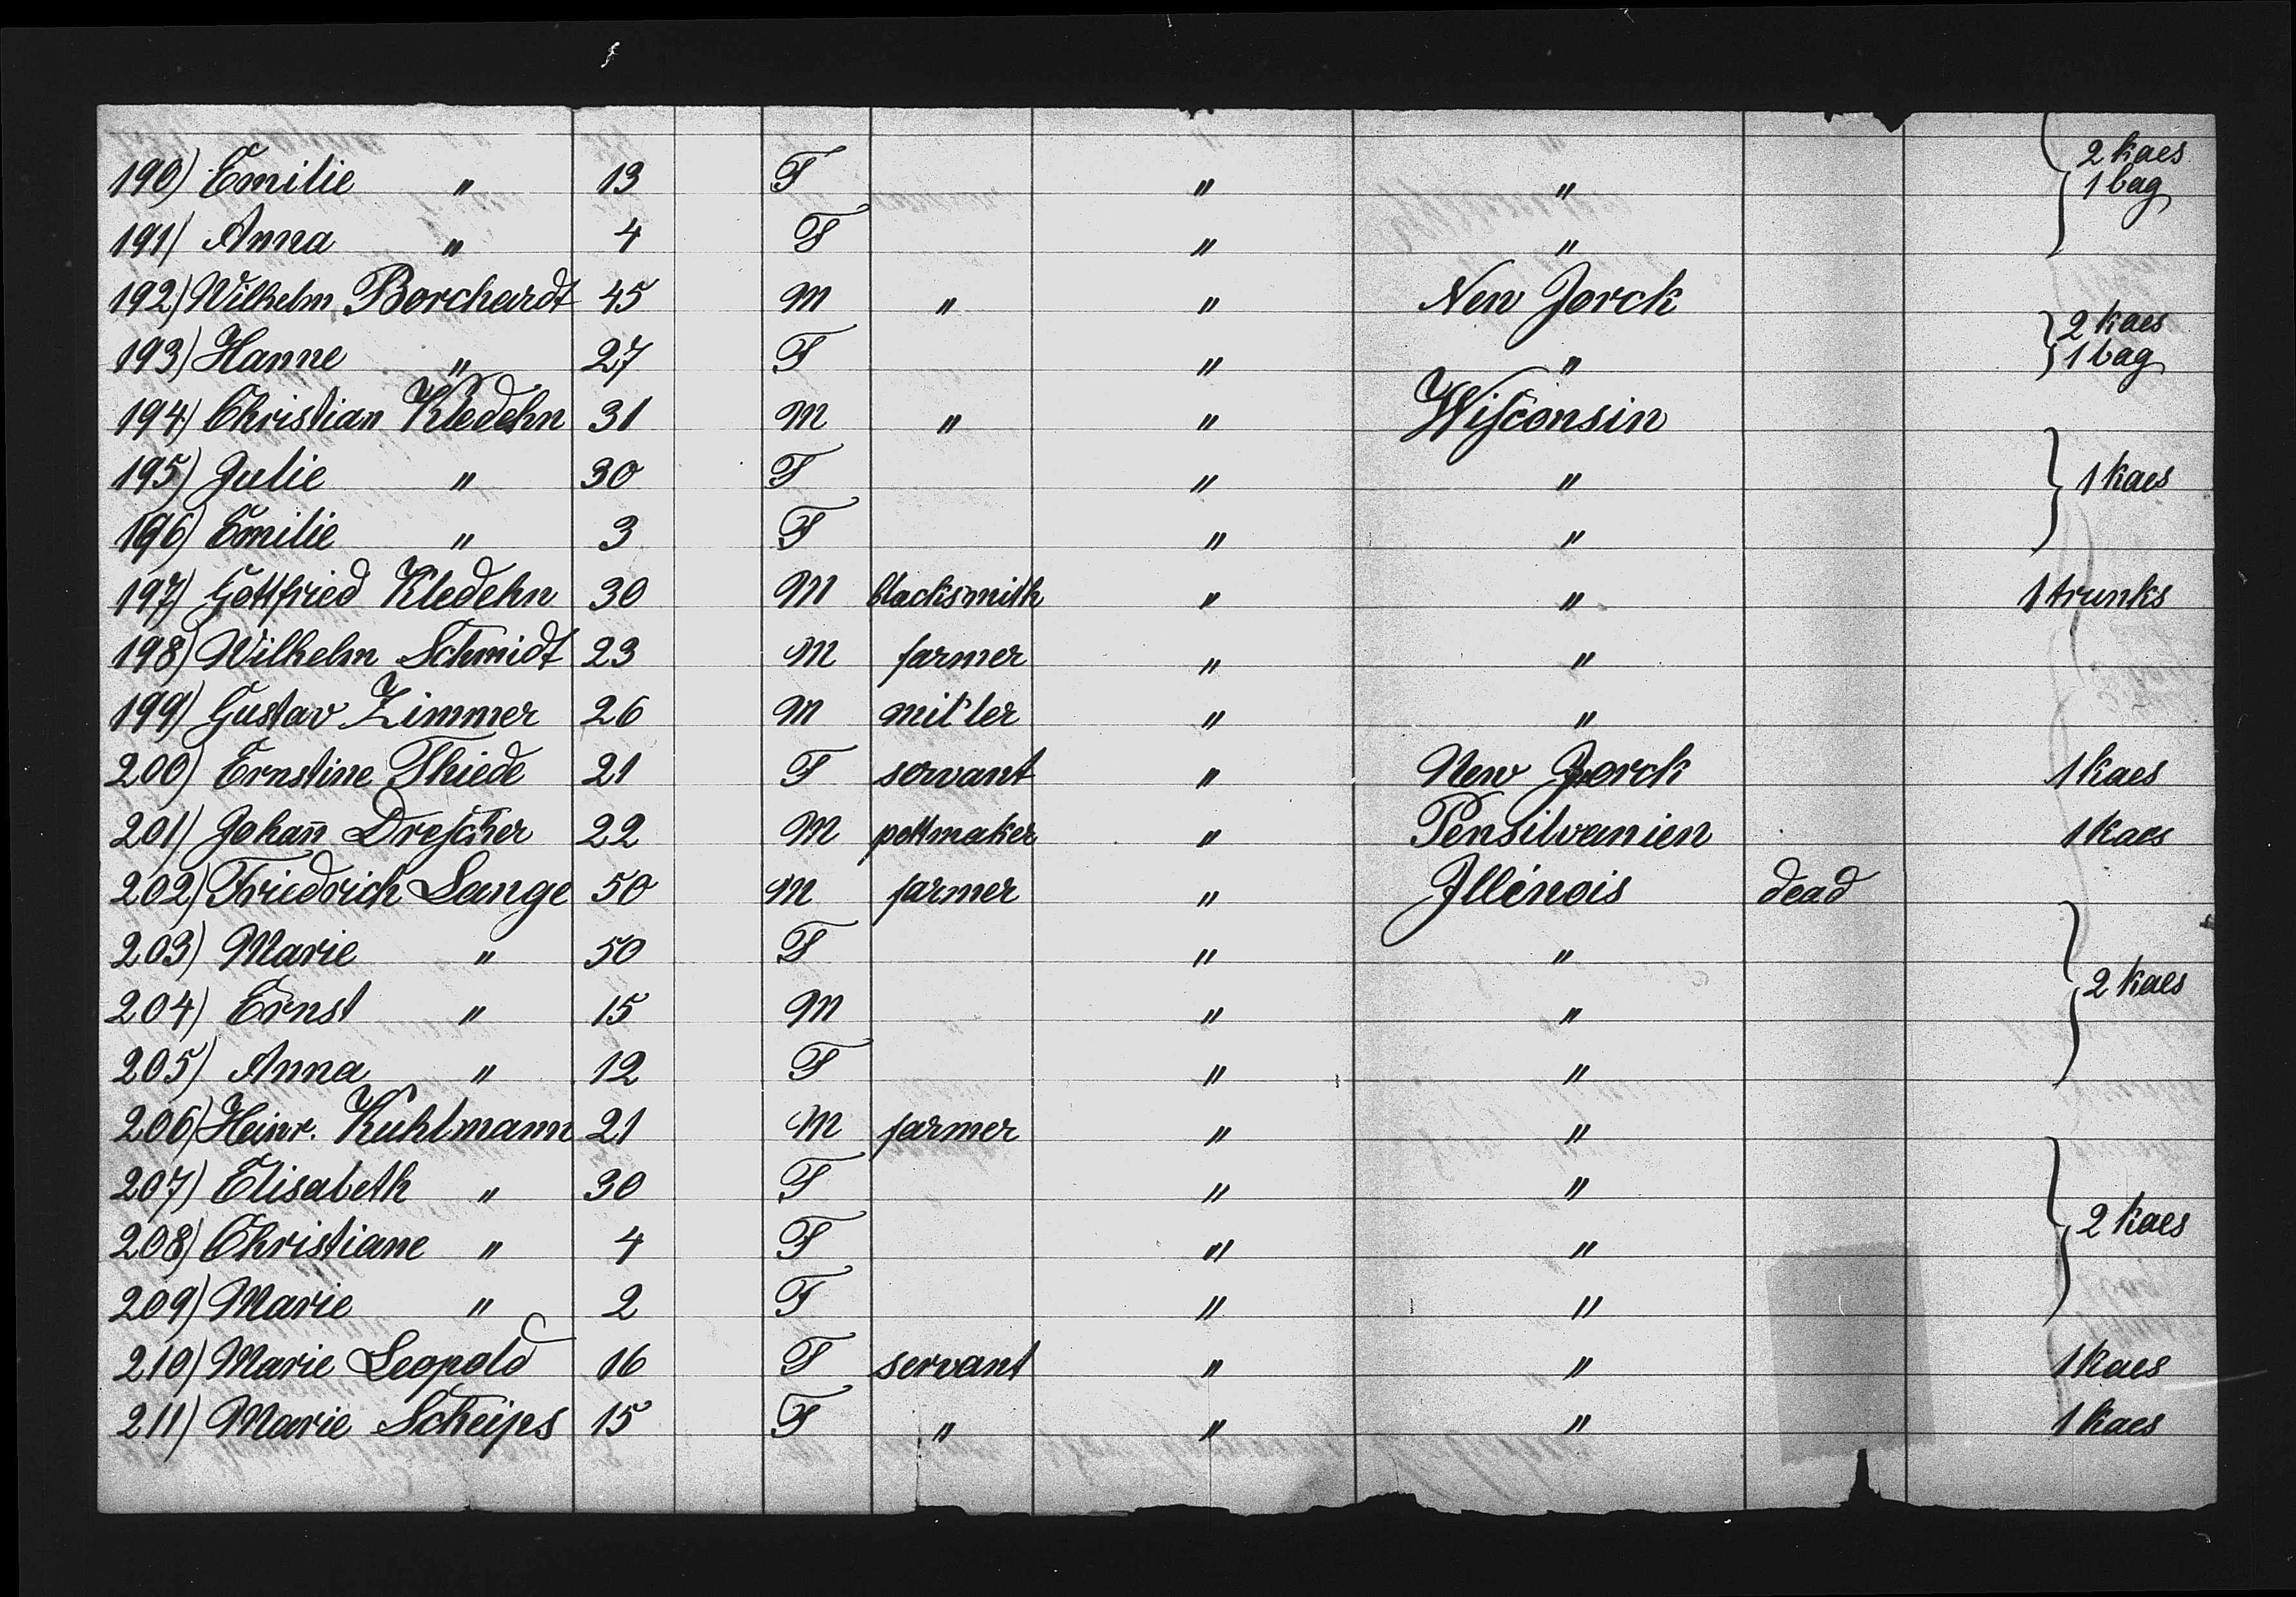 190) Emilie " 13 F " " 2 kaes
1 bag
191) Anna " 4 F " "
192) Wilhelm Borchardt 45 M " " New Jorck
193) Hanne " 27 F " " 2 kaes
1 bag
194) Christian Kledehn 31 M " " Wisconsin
195) Julie " 30 F " " 1 kaes
196) Emilie " 3 F " "
197) Gottfried Kledehn 30 M blacksmith " " 1 trunks
198) Wilhelm Schmidt 23 M farmer " "
199) Gustav Zimmer 26 M miller " "
200) Ernstine Thiede 21 F servant " New Jorck 1 kaes
201) Johan̄ Drescher 22 M pottmaker " Pensilvanien 1 kaes
202) Friedrich Lange 50 M farmer " Jllinois dead
203) Marie " 50 F " "
204) Ernst " 15 M " " 2 kaes
205) Anna " 12 F " "
206) Heinr. Kuhlmann 21 M farmer " "
207) Elisabeth " 30 F " "
208) Christiane " 4 F " " 2 kaes
209) Marie " 2 F " "
210) Marie Leopold 16 F servant " " 1 kaes
211) Marie Scheips 15 F " " " 1 kaes